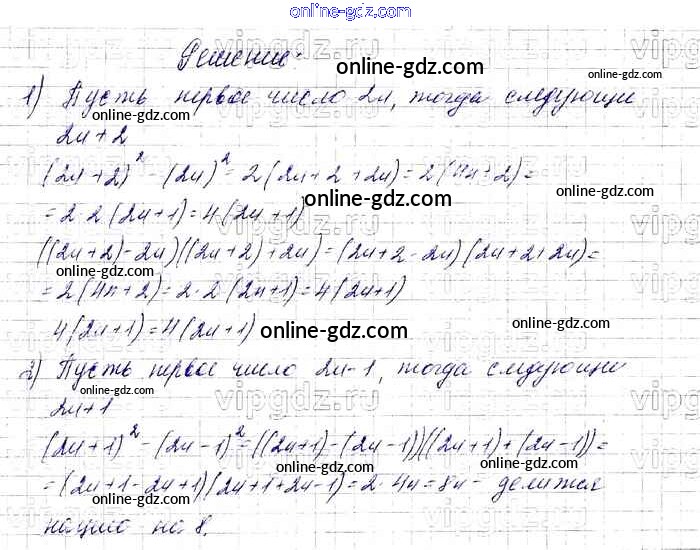 online-gdz.com
Решение.
online-gdz.com
1) Пусть первое число 2n, тогда следующие
online-gdz.com
2n+2
online-gdz.com
(2n+2)² - (2n)² = 2(2n+2+2n) = 2(4n+2) =
online-gdz.com
= 2·2(2n+1) = 4(2n+1)
online-gdz.com
((2n+2)-2n)((2n+2)+2n) = (2n+2-2n)(2n+2+2n) =
online-gdz.com
= 2(4n+2) = 2·2(2n+1) = 4(2n+1)
4(2n+1) = 4(2n+1)
online-gdz.com
online-gdz.com
2) Пусть первое число 2n-1, тогда следующие
online-gdz.com
2n+1
(2n+1)² - (2n-1)² = ((2n+1)-(2n-1))((2n+1)+(2n-1)) =
online-gdz.com
online-gdz.com
= (2n+1-2n+1)(2n+1+2n-1) = 2·4n = 8n - делится
online-gdz.com
нацело на 8.
online-gdz.com
vipgdz.ru
vipgdz.ru
vipgdz.ru